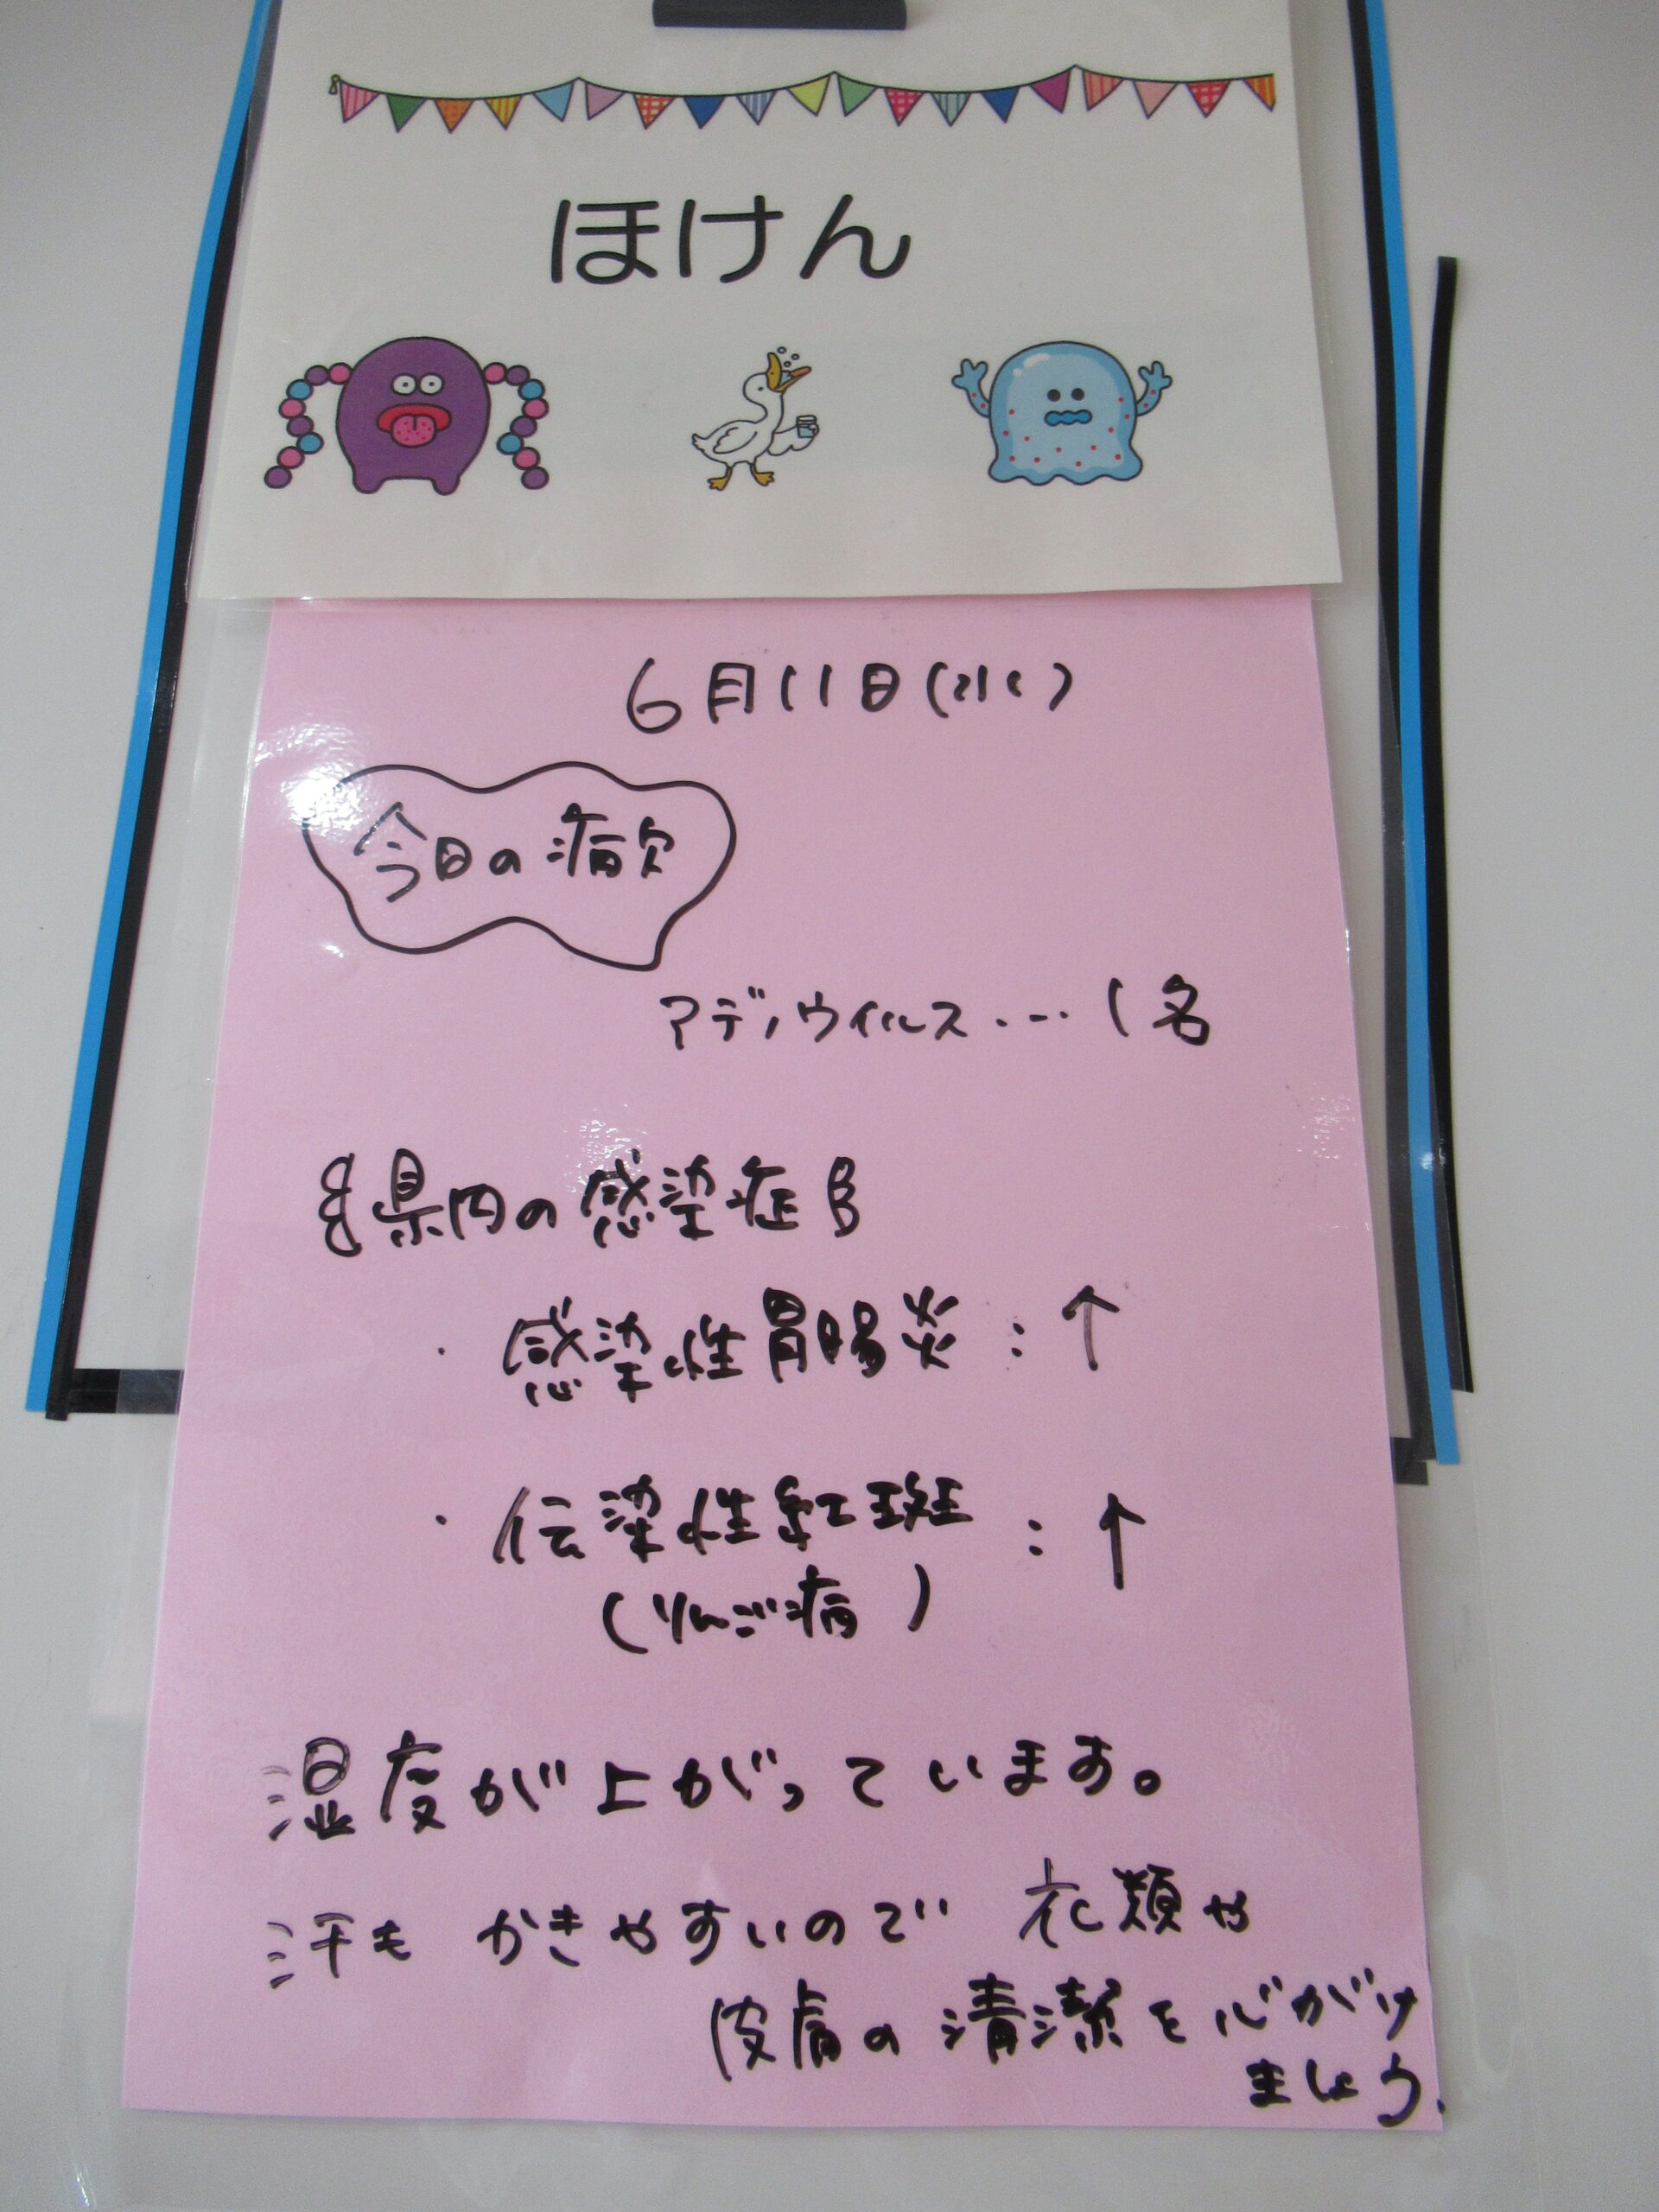 ほけん
6月11日(水)
今日の病欠
アデノウイルス・・・・1名
県内の感染症
・感染性胃腸炎:↑
・伝染性紅斑:↑
(りんご病)
湿度が上がっています。
汗もかきやすいので 衣類や
皮膚の清潔を心がけ
ましょう.